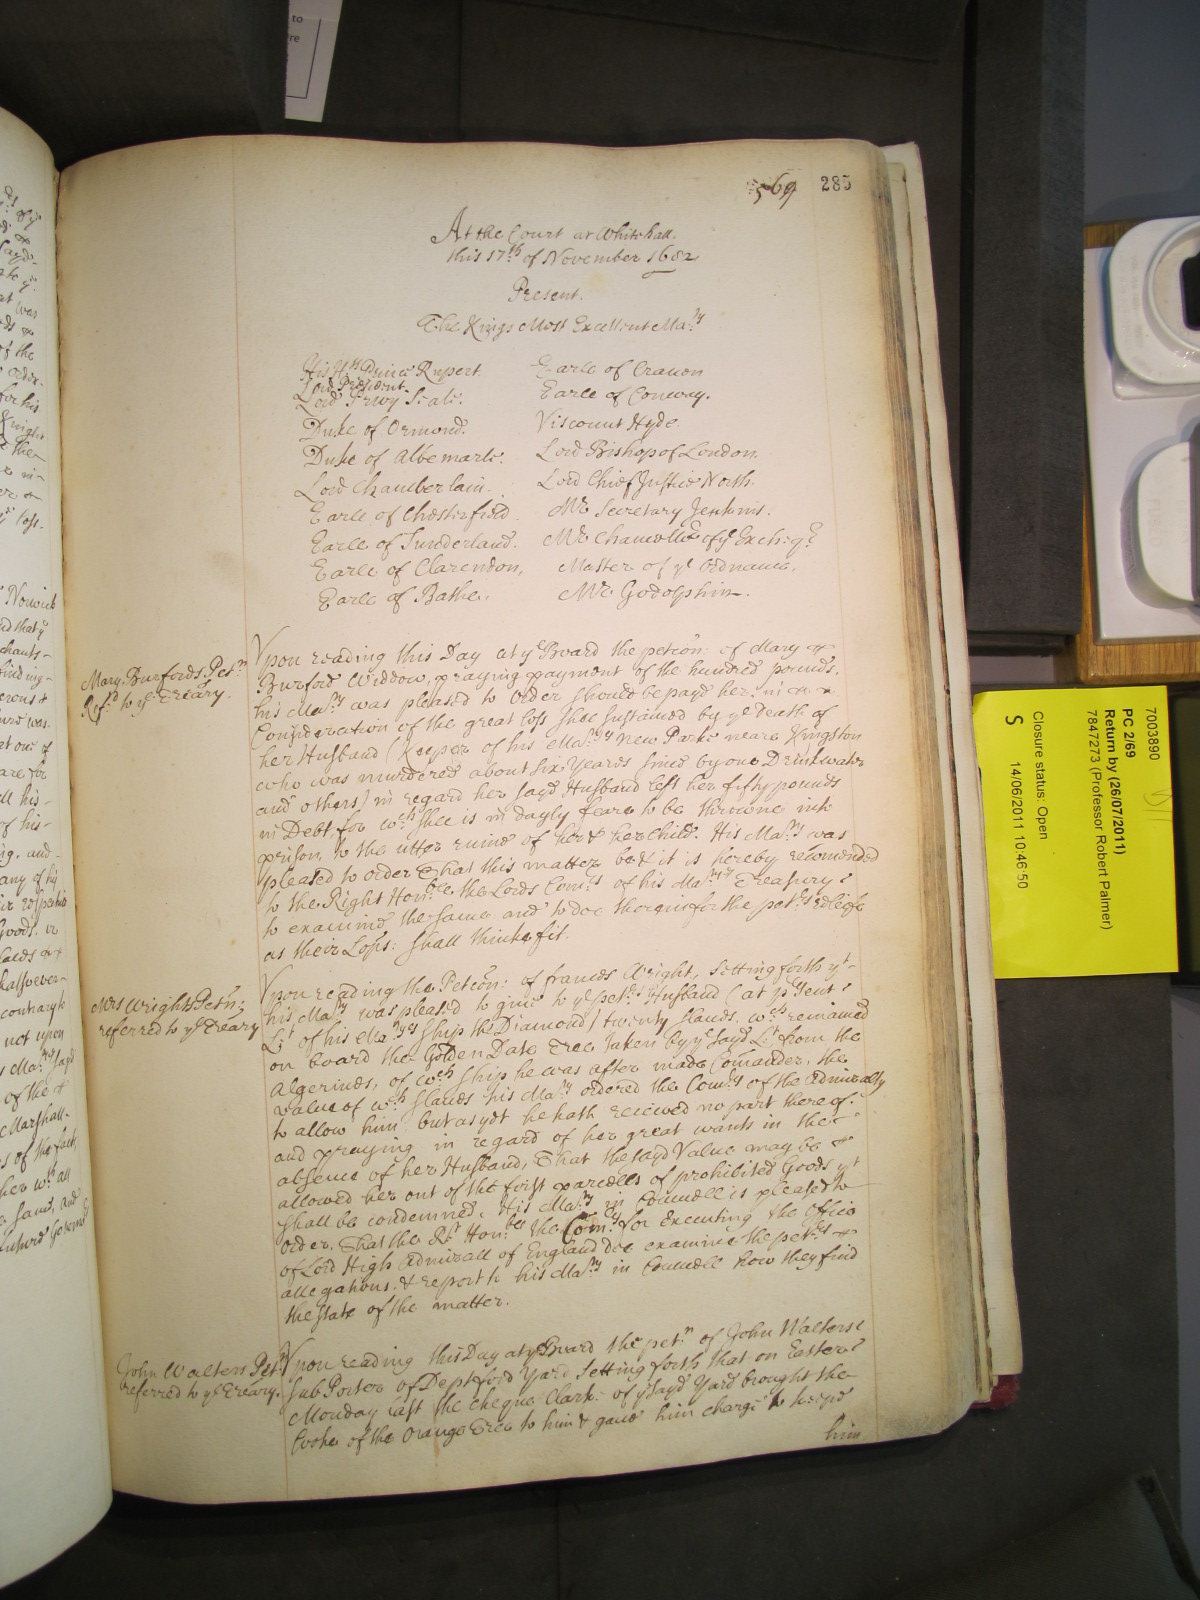 569 285
At the Court at Whitehall.
this 17th of November 1682
Present.
The Kings Most Excellent Ma.ty
His Hs Prince Rupert.
Lord President.
Lord Privy Seale.
Duke of Ormond.
Duke of Albemarle.
Lord Chamberlain.
Earle of Chesterfield.
Earle of Sunderland.
Earle of Clarendon,
Earle of Bathe.
Earle of Craven
Earle of Conway.
Viscount Hyde.
Lord Bishop of London.
Lord Chief Justice North.
Mr Secretary Jenkins.
Mr Chancellr of ye Excheqr
Master of ye Ordnance.
Mr Godolphin.
Mary Burfords Petn
Ref.d to ye Treary.
Upon reading this Day at ye Board the petcon: of Mary
Burford Widdow, praying payment of the hundred pounds,
his Ma.ty was pleased to order should be payd her in
Consideration of the great loss shee sustained by ye Death of
her Husband (Keeper of his Ma.tys New Parke neare Kingston
who was murdered about six Years since by one Drinkwater
and others) in regard her sayd Husband left her fifty pounds
in Debt, for wch shee is in dayly feare to be throwne into
prison, to the utter ruine of her & her Child. His Ma.ty was
pleased to order That this matter be & it is hereby recomended
to the Right Hon.ble the Lords Com.rs of his Ma.tys Treasury
to examine the same and to doe therein for the pet.rs releife
as their Lopps: shall thinke fit.
Mrs Wrights Petn;
referred to ye Treary
Upon reading the Petcon: of frances Wright, Setting forth yt
his Ma.ty was pleased to give to ye pet.rs Husband (at
Lt of his Ma.tyes Ship the Diamond) twenty Slaves, wch remained
on board the Golden Date Tree taken by ye sayd Lt from the
Algerines, of wch Ship he was after made Comander, the
value of wch Slaves his Ma.ty ordered the Com.rs of the Admiralty
to allow him but as yet he hath received no part thereof.
and praying in regard of her great wants in the
absence of her Husband, That the sayd Value may be
allowed her out of the first parcells of prohibited Goods yt
shall be condemned. His Ma.ty in Councell is pleased to
order, That the Rt Hon.ble the Com.rs for executing the Office
of Lord High Admirall of England doe examine the pet.rs
allegations. & report to his Ma.ty in Councell how they find
the state of the matter.
John Walters Petn
referred to ye Treary.
Upon reading this Day at ye Board the petn of John Walters
Sub Porter of Deptford Yard Setting forth that on Easter
Monday last the cheque Clark of ye sayd Yard brought the
Cooke of the Orange Tree to him & gave him charge to keepe
him
7003890
PC 2/69
Return by (26/07/2011)
7847273 (Professor Robert Palmer)
Closure status: Open
14/06/2011 10:46:50
S